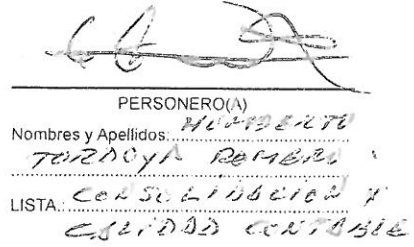 PERSONERO(A)
Nombres y Apellidos: HUMBERTO
TORDOYA ROMERO
LISTA: CONSOLIDACION Y
CALIDAD CONTABLE